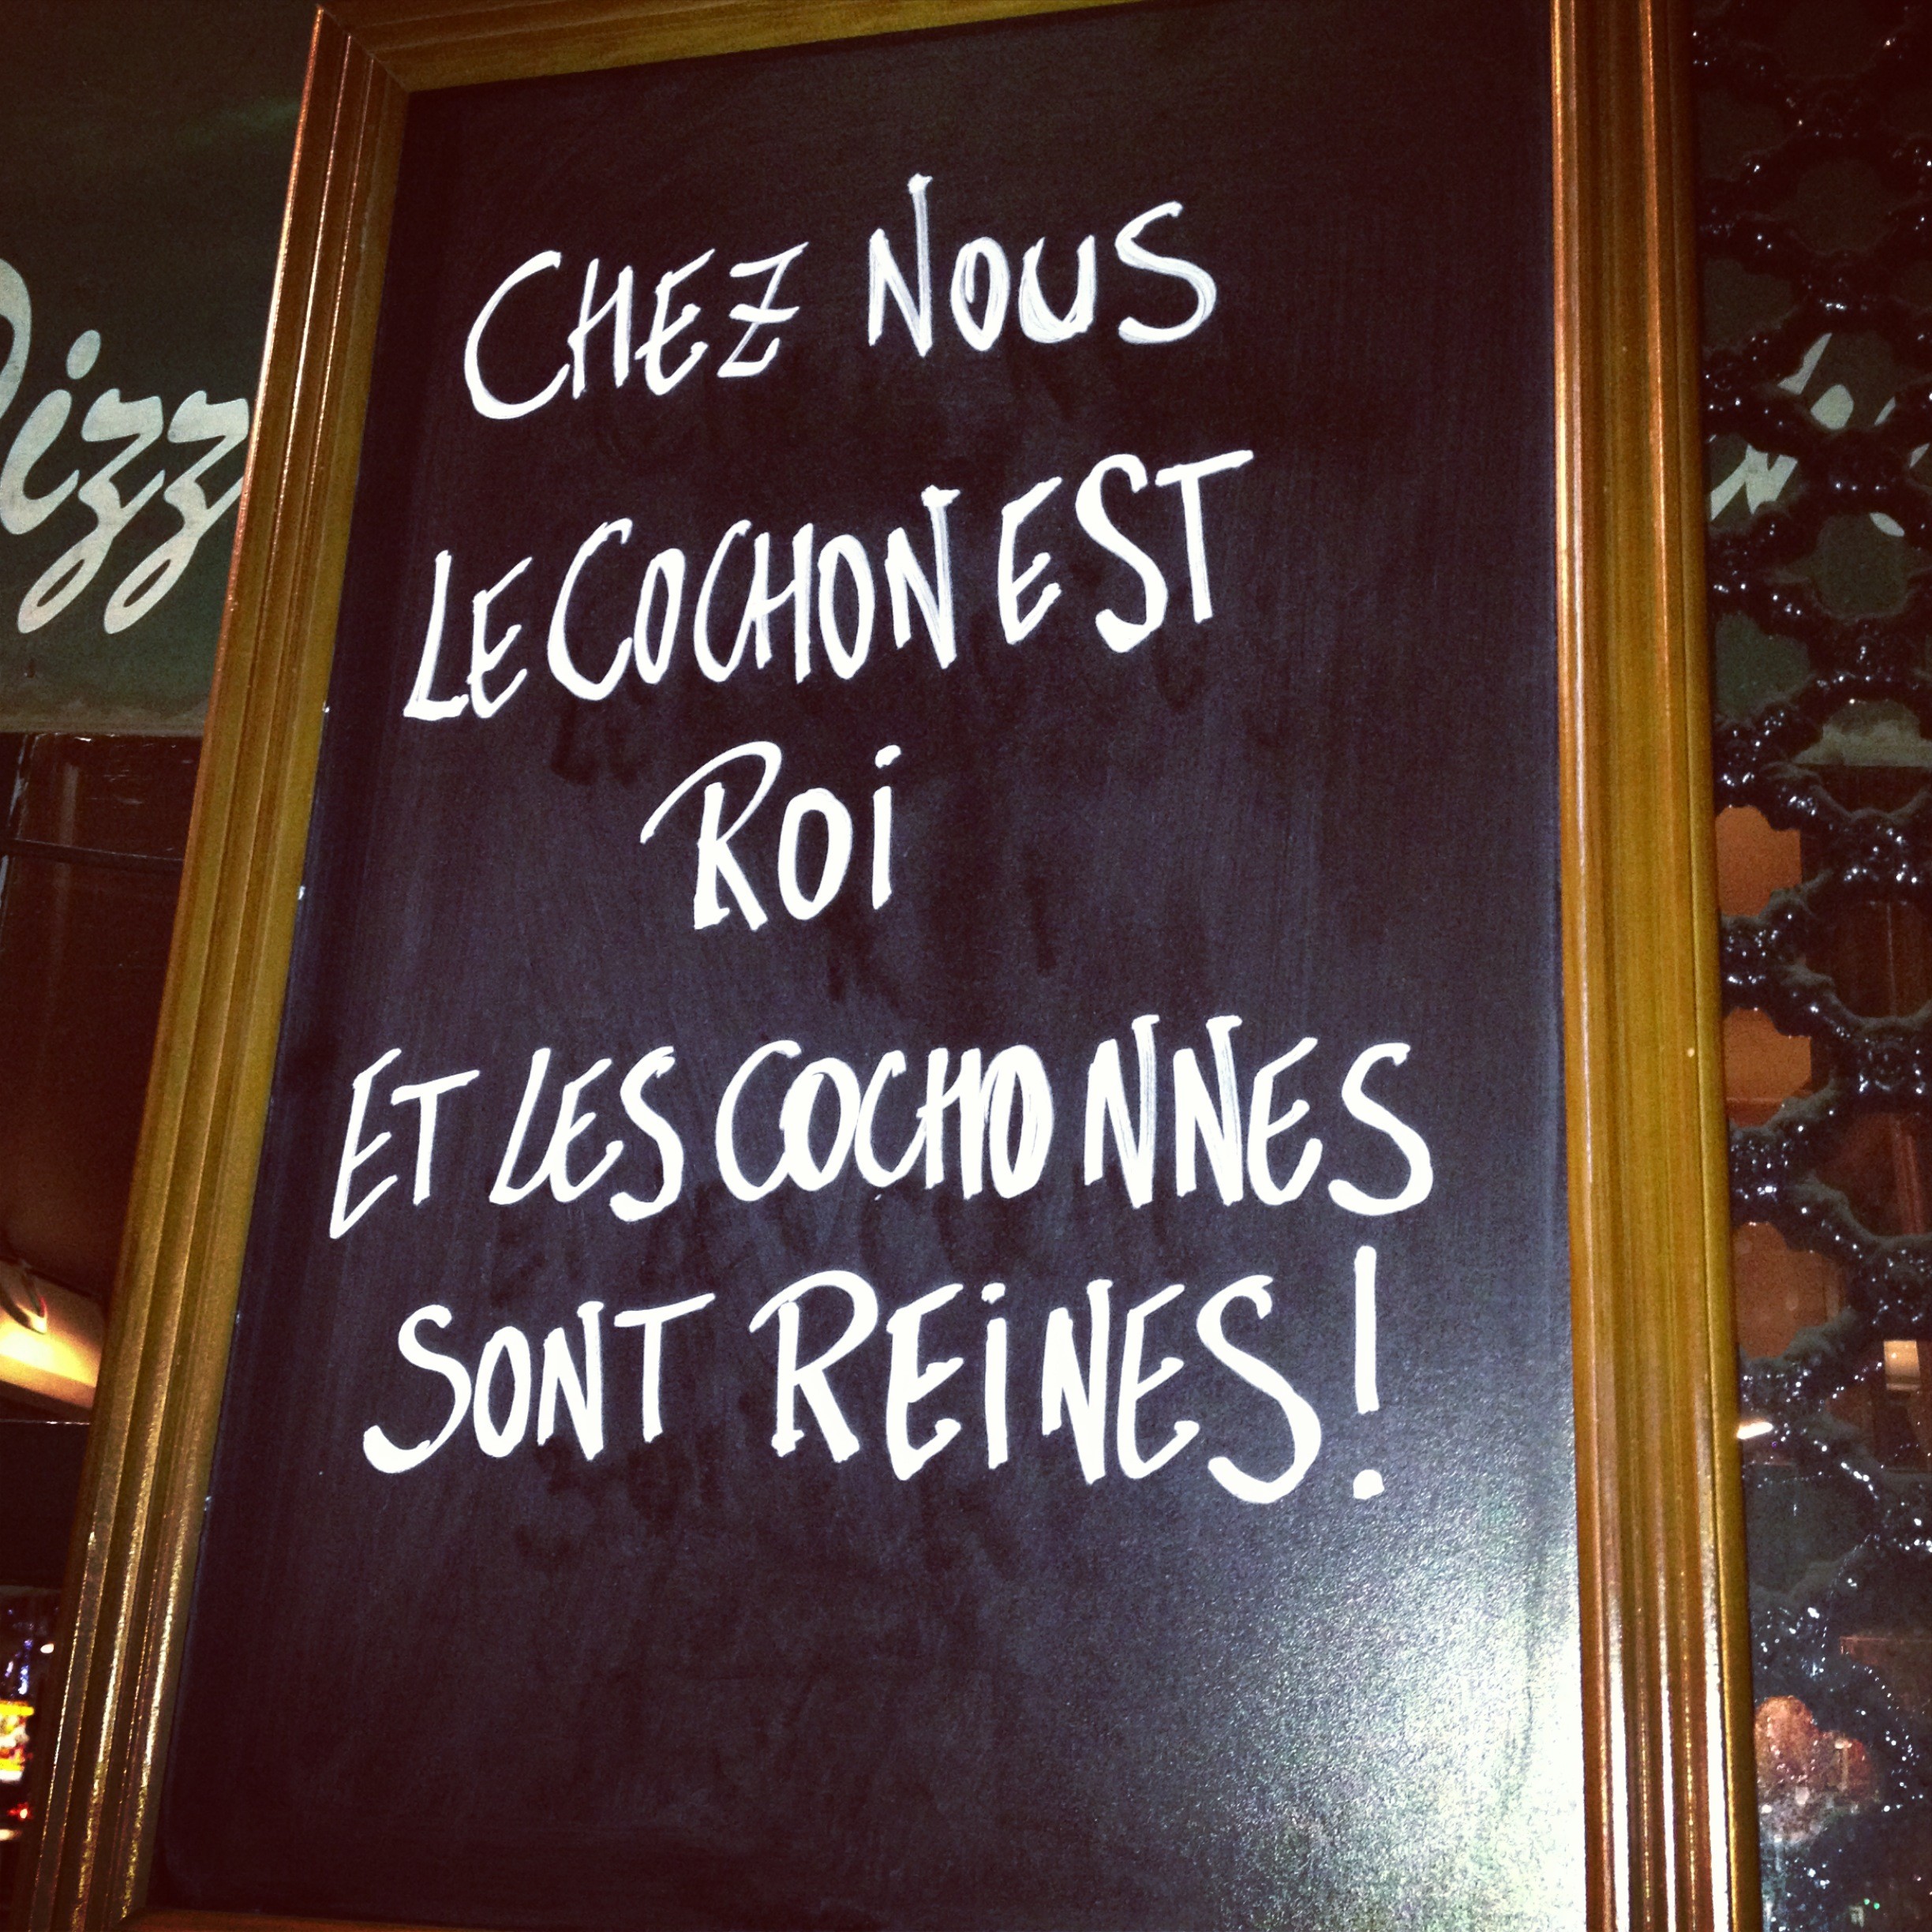 CHEZ NOUS
LE COCHON EST
ROi
ET LES COCHONNES
SONT REiNES!
izz